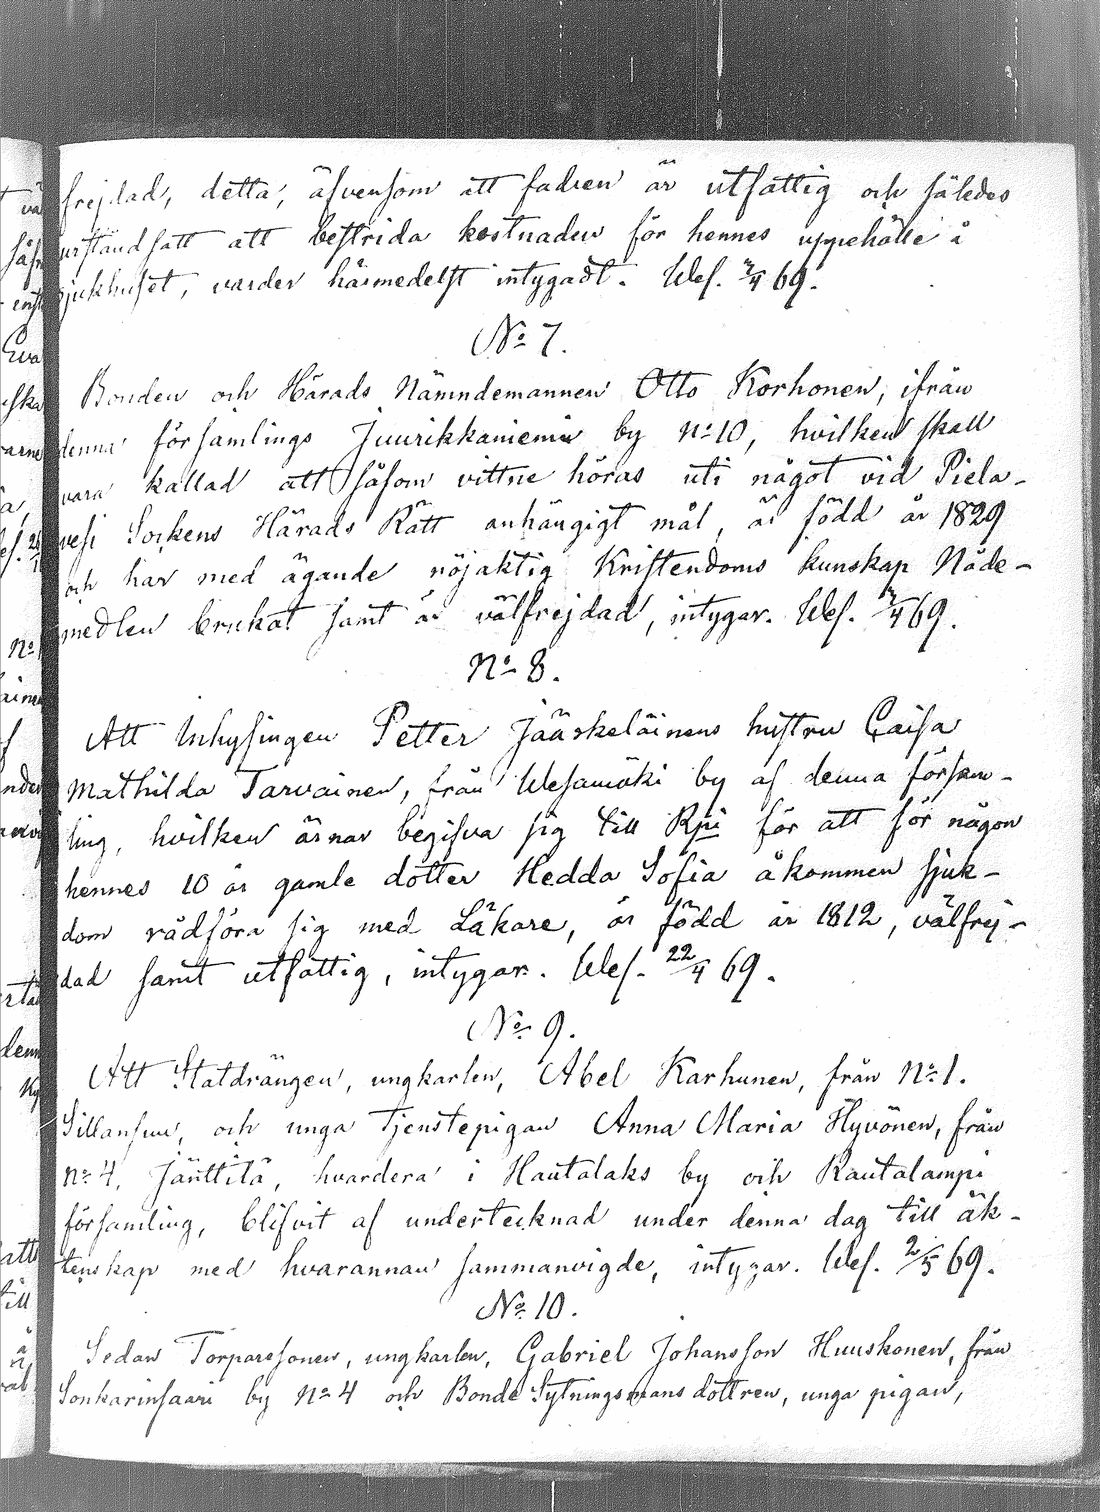 frejdad, detta, äfvensom att fadren är utfattig och således
urståndsatt att bestrida kostnaden för hennes uppehälle å
sjukhuset, varder härmedelst intygadt. Wes. 7/4 69.
No 7.
Bonden och Härads Nämndemannen Otto Korhonen, ifrån
denna församlings Juurikkaniemi by No 10, hvilken skall
vara kallad att såsom vittne höras uti något vid Piela-
vesi Sockens Härads Rätt anhängigt mål, är född år 1829
och har med ägande nöjaktig Kristendoms kunskap Nåde-
medlen brukat samt är välfrejdad, intygar. Wes. /4 69.
No 8.
Att Inhysingen Petter Jääskeläinens hustru Caisa
Mathilda Tarvainen, från Wesamäki by af denna försam-
ling, hvilken ärnar begifva sig till Kpi för att för någon
hennes 10 år gamle dotter Hedda Sofia åkommen sjuk-
dom rådföra sig med Läkare, är född år 1812, välfrej-
dad samt utfattig, intygar. Wes. 22/4 69.
No 9.
Att Statdrängen, ungkarlen, Abel Karhunen, från No 1.
Sillansuu, och unga Tjenstepigan Anna Maria Hyvönen, från
No 4, Jänttilä, hvardera i Hautalaks by och Rautalampi
församling, blifvit af undertecknad under denna dag till äk-
tenskap med hvarannan sammanvigde, intygar. Wes. 2/5 69.
No 10.
Sedan Torparesonen, ungkarlen, Gabriel Johansson Huuskonen, från
Sonkarinsaari by No 4 och Bonde Sytningsmans dottren, unga pigan,